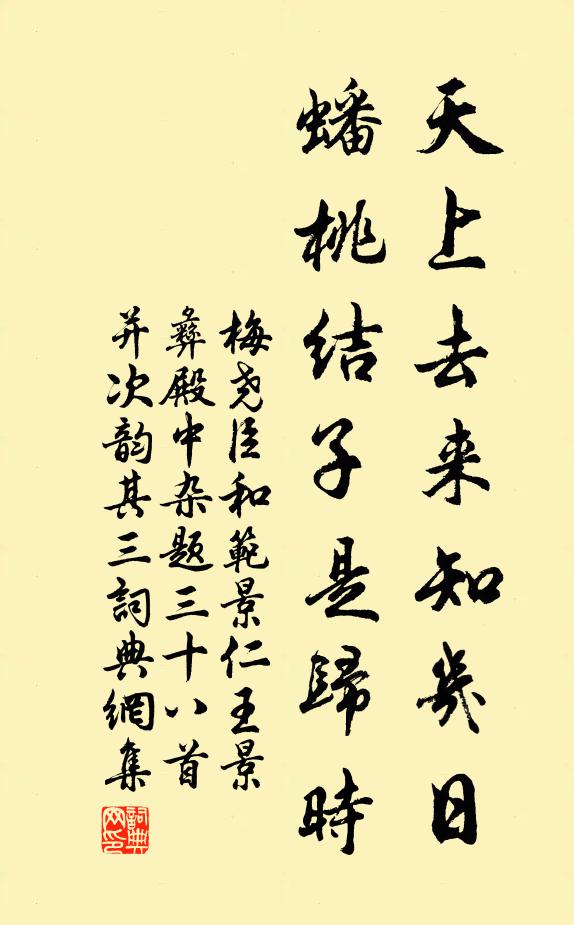 天上去来知幾日
蟠桃结子是歸時
梅尧臣和範景仁王景
彝殿中杂题三十八首
并次韵其三詞典網集
詞典
网印